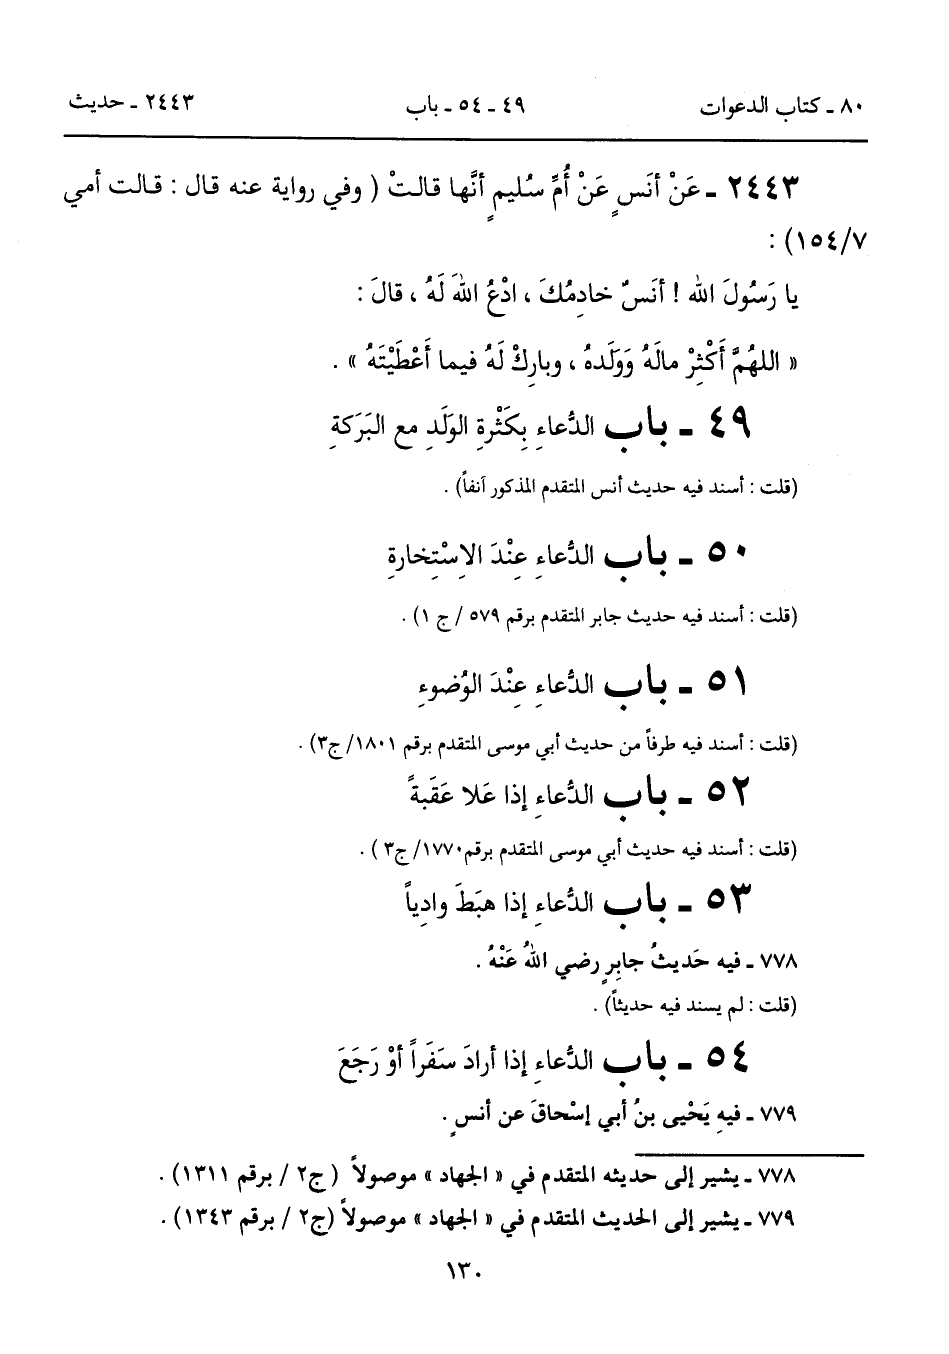 ٨٠ ـ كتاب الدعوات ٤٩ ـ ٥٤ ـ باب ٢٤٤٣ ـ حديث
٢٤٤٣ ـ عَنْ أنَسٍ عَنْ أُمِّ سُليمٍ أنَّها قالتْ ( وفي رواية عنه قال : قالت أمي
٧/١٥٤) :
يا رَسُولَ الله ! أنَسٌ خادِمُكَ ، ادْعُ اللهَ لَهُ ، قالَ :
« اللهُمَّ أَكْثِرْ مالَهُ وَوَلَدهُ ، وبارِكْ لَهُ فيما أَعْطَيْتَهُ » .
٤٩ ـ باب الدُّعاءِ بِكَثْرةِ الوَلَدِ مع البَرَكةِ
(قلت : أسند فيه حديث أنس المتقدم المذكور آنفاً) .
٥٠ ـ باب الدُّعاءِ عِنْدَ الاِسْتِخارةِ
(قلت : أسند فيه حديث جابر المتقدم برقم ٥٧٩ / ج ١) .
٥١ ـ باب الدُّعاءِ عِنْدَ الوُضوءِ
(قلت : أسند فيه طرفاً من حديث أبي موسى المتقدم برقم ١٨٠١/ ج٣) .
٥٢ ـ باب الدُّعاءِ إذا عَلا عَقَبةً
(قلت : أسند فيه حديث أبي موسى المتقدم برقم١٧٧٠/ ج٣ ) .
٥٣ ـ باب الدُّعاءِ إذا هبَطَ وادِياً
٧٧٨ ـ فيه حَديثُ جابِرٍ رضي اللهُ عَنْهُ .
(قلت : لم يسند فيه حديثاً) .
٥٤ ـ باب الدُّعاءِ إذا أرادَ سَفَراً أوْ رَجَعَ
٧٧٩ ـ فيهِ يَحْيى بنُ أبي إسْحاقَ عن أنسٍ .
٧٧٨ ـ يشير إلى حديثه المتقدم في « الجهاد » موصولاً ( ج٢ / برقم ١٣١١) .
٧٧٩ ـ يشير إلى الحديث المتقدم في « الجهاد » موصولاً (ج٢ / برقم ١٣٤٣) .
١٣٠